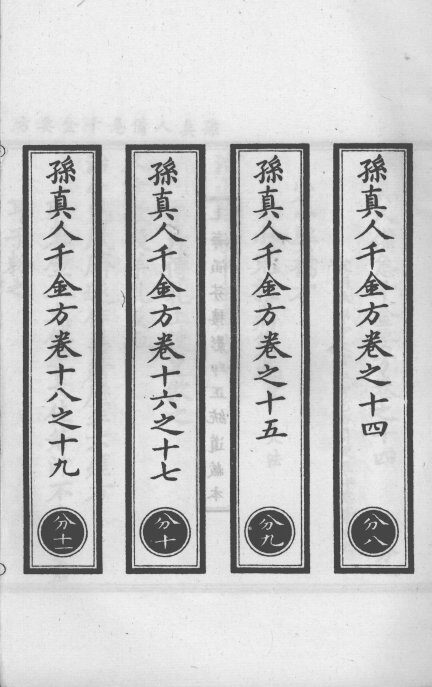 孫真人千金方卷之十四
分八
孫真人千金方卷之十五
分九
孫真人千金方卷十六之十七
分十
孫真人千金方卷十八之十九
分十一